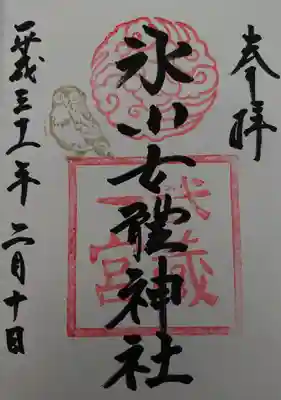 奉拝
武蔵
一宮
氷川女體神社
平成三十一年二月十日